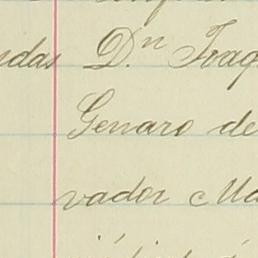 ndas Dn Joaq
Genaro de
vador Ma